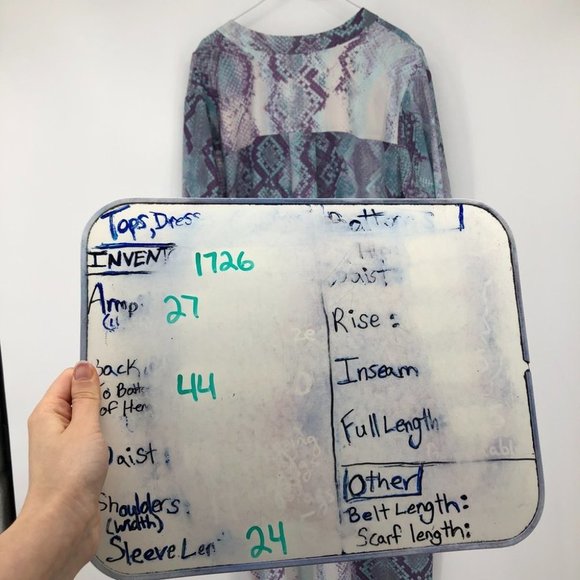 Tops, Dress
INVENT 1726
Amp 27
Back
To Bott 44
of Hem
Waist:
Shoulders:
(width)
Sleeve Len 24
Waist
Rise:
Inseam
Full Length
Other
Belt Length:
Scarf length: